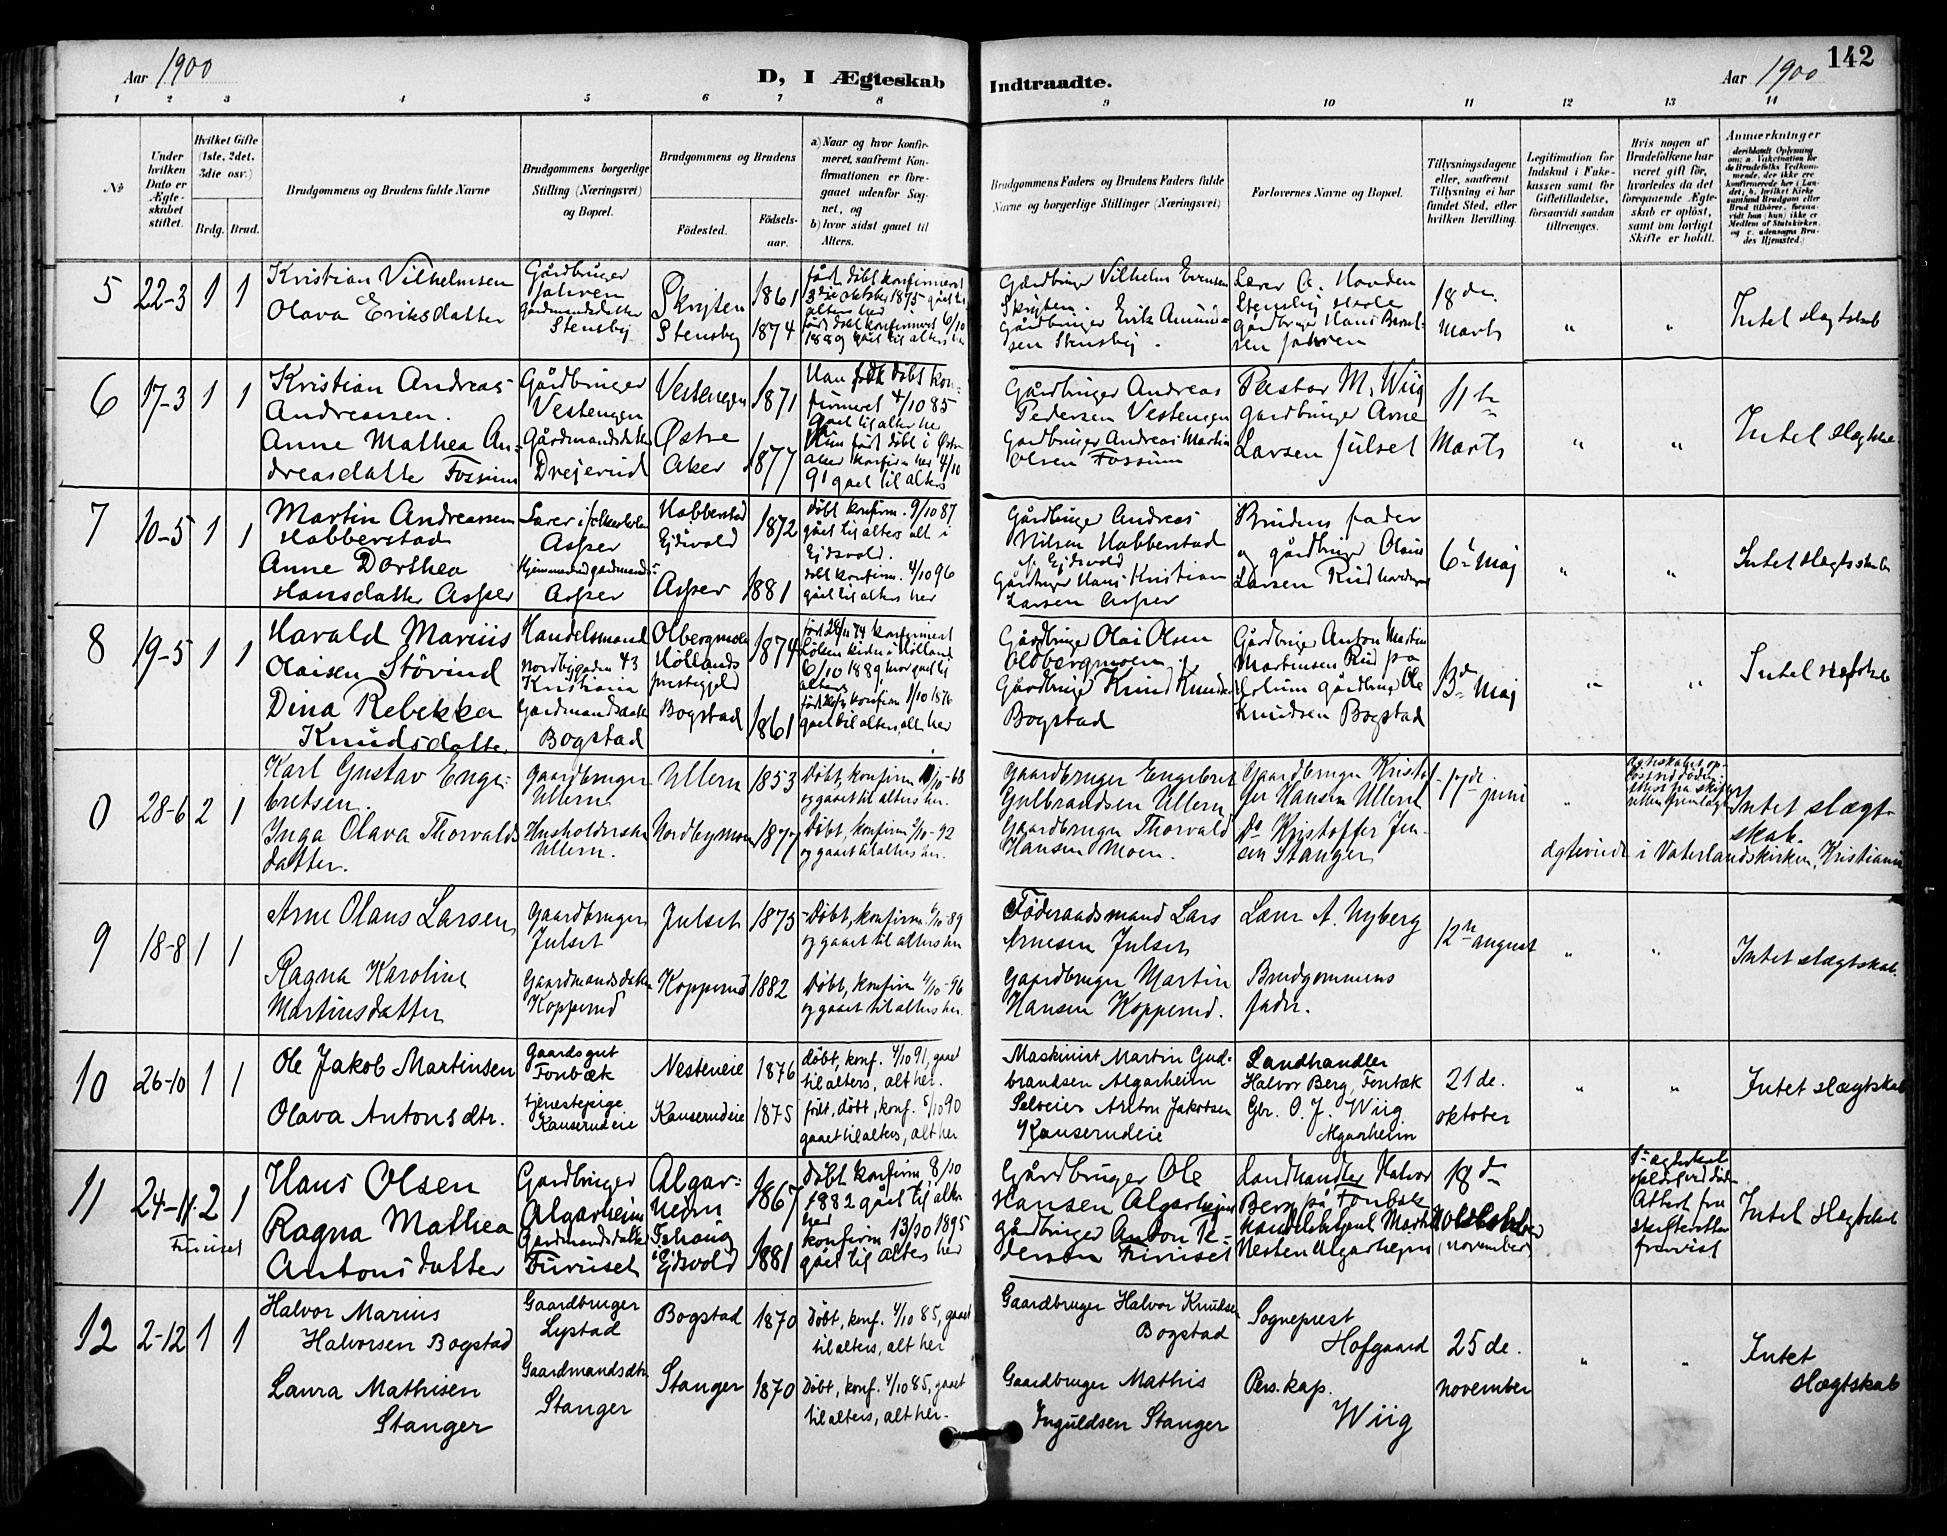 Aar 1900
D, I Ægteskab Indtraadte.
Aar 1900
142
1 2 3 4 5 6 7 8 9 10 11 12 13 14
No
Under hvilken Dato er Ægteskabet stiftet.
Hvilket Gifte (1ste, 2det, 3die osv.)
Brdg. Brud.
Brudgommens og Brudens fulde Navne
Brudgommens borgerlige Stilling (Næringsvei) og Bopæl.
Brudgommens og Brudens
Fødested.
Fødselsaar.
a) Naar og hvor konfirmeret, saafremt Konfirmationen er foregaaet udenfor Sognet, og
b) hvor sidst gaaet til Alters.
Brudgommens Faders og Brudens Faders fulde Navne og borgerlige Stillinger (Næringsvei)
Forlovernes Navne og Bopæl.
Tillysningsdagene eller, saafremt Tillysning ei har fundet Sted, efter hvilken Bevilling.
Legitimation for Indskud i Enkekassen samt for Giftetilladelse, forsaavidt saadan tiltrænges.
Hvis nogen af Brudefolkene har været gift før, hvorledes da det foregaaende Ægteskab er opløst, samt om lovligt Skifte er holdt.
Anmærkninger
5 22-3 1 1
Kristian Vilhelmsen
Olava Eriksdatter
Gårdbruger
Gårdmandsdatter
Stensby
Skrijten
Stensby
1861
1874
født døbt konfirmeret
1875 gået til
alters her
født døbt konfirmeret 6/10
1889 gået til alters her
Gårdbruger Vilhelm Evensen
Skrijten.
Gårdbruger Erik Amundsen Stensby.
Lærer A.
Stensby skole
Gårdbruger Hans
18 de.
Marts
" "
Intet slægtskab
6 17-3 1 1
Kristian Andreas
Andreassen.
Anne Mathea Andreasdatter Fossum
Gårdbruger
Vestengen
Gårdmandsdatter
Drejerud
Vestengen
Østre
Aker
1871
1877
Han født døbt konfirmeret 4/10 85
gået til alter her
Hun født døbt i Østre
Aker konfirm her 4/10
91 gået til alters
Gårdbruger Andreas
Pedersen Vestengen
Gårdbruger Andreas Martin
Olsen Fossum
Pastor M. Wiig
gårdbruger Arne
Larsen Julset
11te
Marts
" "
Intet slægtskab
7 10-5 1 1
Martin Andreassen
Habberstad
Anne Dorthea
Hansdatter Asper
Lærer i folkeskolen
Asper
Asper
Habberstad
Ejdsvold
Asper
1872
1881
Døbt konfirm. 9/10 87
gået til alters alt i
Ejdsvold.
døbt konfirm. 4/10 96
gået til alters her
Gårdbruger Andreas
Nilsen Habberstad
Ejdsvold
Gårdbruger Hans Kristian
Larsen Asper
Brudens fader
og gårdbruger Olaus
Larsen Rud
6te Maj
" "
Intet slægtskab
8 19-5 1 1
Harald Marius
Olaisen Støvind
Dina Rebekka
Knudsdatter
Handelsmand
Nordbygaden 43
Kristiania
Gårdmandsdatter
Bogstad
Olbergmoen
Hølands
prestegjeld
Bogstad
1874
1861
født 28/11 74 konfirmeret
Løken kirke i Høland
6/10 1889, hvor gået til
alters
konfirm 1/10 1876
gået til alters, alt her
Gårdbruger Olai Olsen
Oldbergmoen
Gårdbruger Knud Knudsen
Bogstad
Gårdbruger Anton Martin
Martinsen Rud på
Holum gårdbruger Ole
Knudsen Bogstad
13de Maj
" "
Intet slægtskab
0 28-6 2 1
Karl Gustav Engebretsen.
Inga Olava Thorvaldsdatter.
Gaardbruger
Ullern
Husholderske
Ullern.
Ullern
Nordbymoen
1853
1877
Døbt, konfirm /10-68
og gaaet til alters her.
Døbt, konfirm 2/10-92
og gaaet til alters her.
Gaardbruger Engebret
Gulbrandsen Ullern
Gaardbruger Thorvald
Hansen Moen.
Gaardbruger Kristoffer Hansen Ullern
Do Kristoffer Jensen Stanger
17de juni
"
Intet slægtskab.
ægteviede i Vaterlandskirken, Kristiania
9 18-8 1 1
Arne Olaus Larsen,
Ragna Karoline
Martinsdatter
Gaardbruger
Julset
Gaardmandsdatter
Kopperud
Julset
Kopperud
1873
1882
Døbt, konfirm. 6/10-89
og gaaet til alters her
Døbt, konfirm 4/10-96
og gaaet til alters her.
Føderaadsmand Lars
Arnesen Julset
Gaardbruger Martin
Hansen Kopperud.
Lærer A. Nyberg
Brudgommens
fader.
12te august
" "
Intet slægtskab.
10 26-10 1 1
Ole Jakob Martinsen
Olava Antonsdtr.
Gaardsgut
Fonbæk
tjenestepige
Kanserudeie
Nesteneie
Kanserudeie
1876
1875
døbt, konf. 4/10 91, gaaet
til alters, alt her.
født, døbt, konf. 5/10 90
gaaet til alters, alt her
Maskinist Martin Gudbrandsen Algarheim
Selveier Anton Jakobsen
Kanserudeie
Landhandler
Halvor Berg, Fonbæk
Gbr. O. J. Wiig
Algarheim
21 de.
oktober
" "
Intet slægtskab
11 24-11 2 1
Furuset
Hans Olsen
Ragna Mathea
Antonsdatter
Gårdbruger
Algarheim
Gårdmandsdatter
Furuset
Algarheim
i Ejdsvold
1867
1881
Døbt konfirm 8/10
1882 gået til alter
her
konfirm 13/10 1895
gået til alters her
Gårdbruger Ole
Hansen Algarhejm
gårdbruger Anton Pedersen Furuset
Landhandler Halvor
Berg på Fonbæk
Nesten Algarhejm
18 de
(november)
1ste ægteskab
opløst ved død
Attest fra
skifteretten
fremvist
Intet slægtskab
12 2-12 1 1
Halvor Marius
Halvorsen Bogstad
Laura Mathisen
Stanger
Gaardbruger
Lystad
Gaardmandsdtr.
Stanger
Bogstad
Stanger
1870
1870
Døbt, konf. 4/10 85, gaaet
til alters, alt her
Døbt, konf. 4/10 85, gaaet
til alters, alt her.
Gaardbruger Halvor Knudsen
Bogstad
Gaardbruger Mathis
Inguldsen Stanger
Sogneprest
Hofgaard
Pers. kap.
Wiig
25 de.
november
" "
Intet
slægtskab